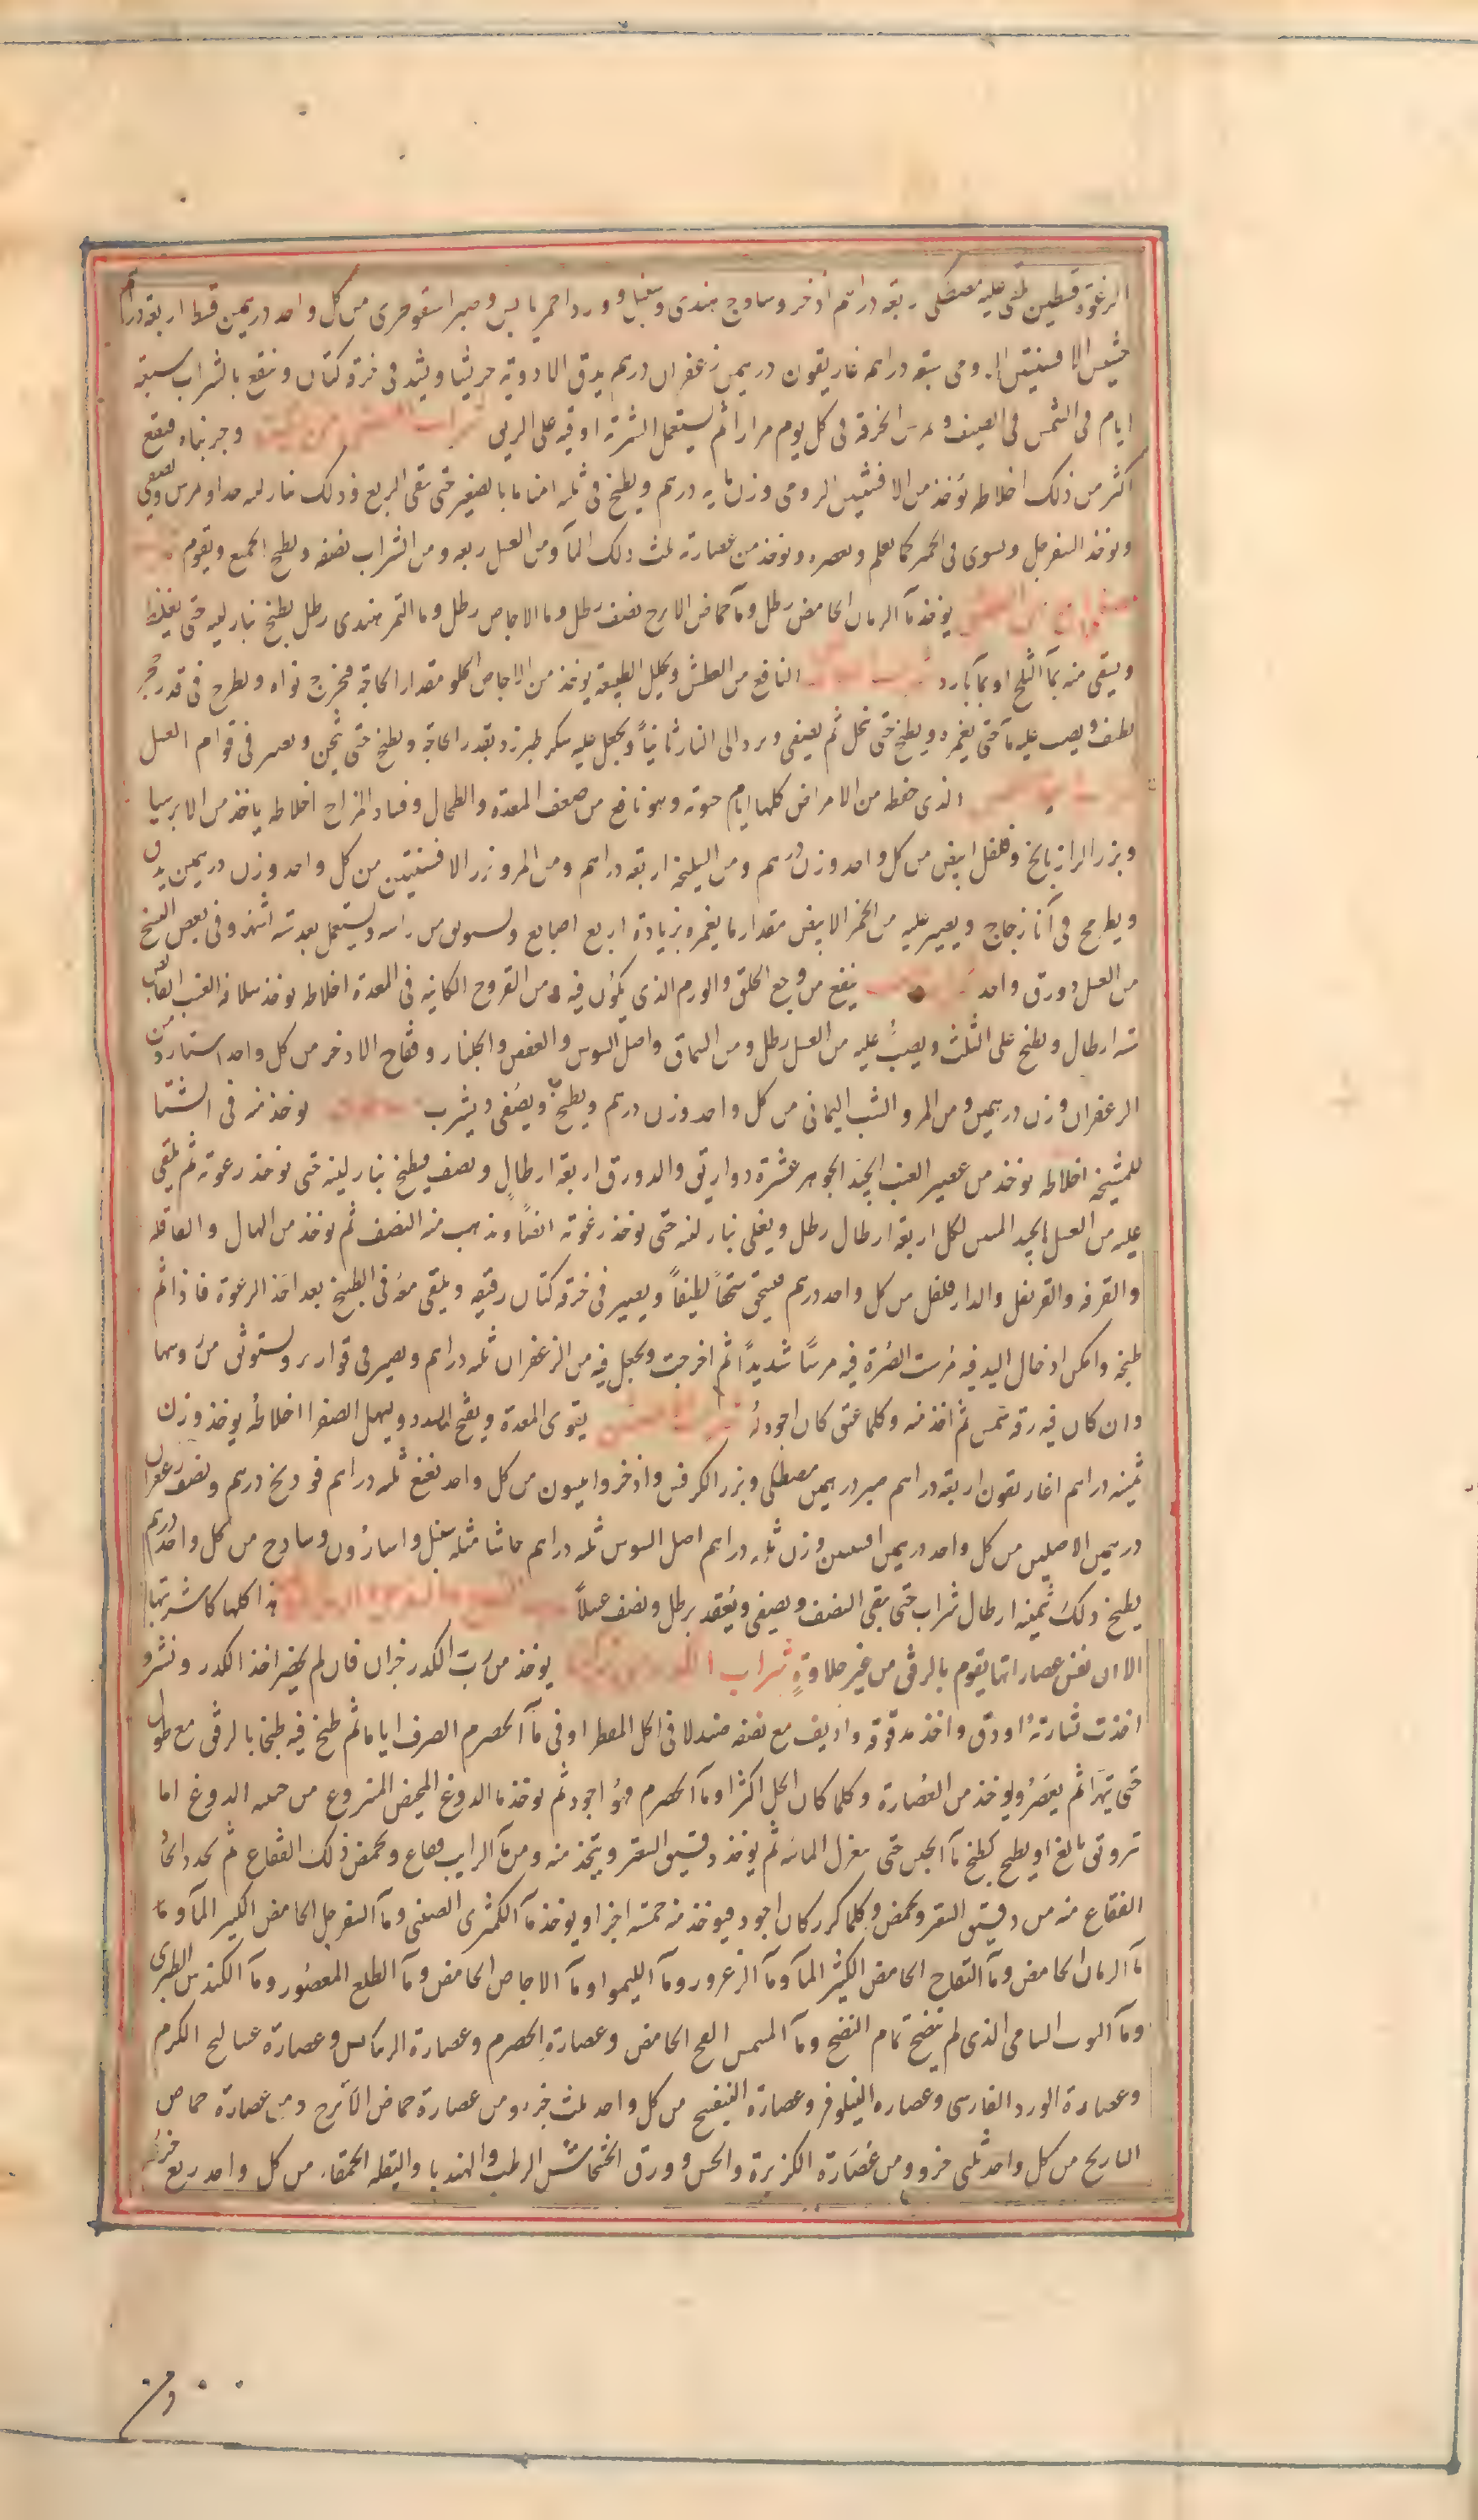 الرغوة قسطين يلقى عليه مصطكى اربعة دراهم اذخر وساوج هندى وسنبل وورد احمر يابس وصبر اسقوطرى من كل واحد درهمين قسط اربعة دراهم
حشيش الافسنتين الرومى ستة دراهم غاريقون درهمين زعفران درهم يدق الادوية جريشا ويشد فى خرقة كتان وينقع بالشراب سبعة
ايام فى الشمس فى الصيف و الخرقة فى كل يوم مرارا ثم يستعمل الشربة اوقية على الريق وجربناه فنفع
اكثر من ذلك اخلاطه يؤخذ من الافسنتين الرومى وزن مايه درهم ويطبخ فى ثلثه امنا ما بالصغير حتى بقى الربع وذلك بنار لينه جدا ويمرس ويصفى
ويؤخذ السفرجل ويشوى فى الجمر كما يعلم ويعصر ويؤخذ من عصارته ثلث ذلك الماء ومن العسل ربعه ومن الشراب نصفه ويطبخ الجميع ويقوم
يؤخذ ماء الرمان الحامض رطل وماء حماض الاترج نصف رطل وما الاجاص رطل وما التمر هندى رطل يطبخ بنار لينه حتى يغلظ
ويسقى منه بماء الثلج او بماء بارد النافع من العطش ويحلل الطبيعة يؤخذ من الاجاص الحلو مقدار الحاجة فيخرج نواه ويطرح فى قدر حجر
نظيف ويصب عليه ماء حتى يغمره ويطبخ حتى ينحل ثم يصفى ويرد الى النار ثانياً ويجعل عليه سكر طبرزد بقدر الحاجة ويطبخ حتى يثخن ويصير فى قوام العسل
الذى حفظه من الامراض كلها ايام حيوته وهو نافع من ضعف المعدة والطحال وفساد المزاج اخلاطه ياخذ من الايرسا
وبزر الرازيانج وفلفل ابيض من كل واحد وزن درهم ومن السليخه اربعة دراهم ومن المر وزر الافسنتين من كل واحد وزن درهمين يدق
ويطرح فى آناء زجاج ويصير عليه من الخمر الابيض مقدار ما يغمره بزيادة اربع اصابع ويستوثق من راسه ويستعمل بعد ستة اشهر وفى بعض النسخ
من العسل دورق واحد ينفع من وجع الحلق والورم الذى يكون فيه ومن القروح الكاينة فى المعدة اخلاطه يؤخذ سلافة العنب القابض
ستة ارطال ويطبخ على الثلث ويصب عليه من العسل رطل ومن السماق واصل السوس والعفص والجلنار وفقاح الاذخر من كل واحد استار ومن
الزعفران وزن درهمين ومن المر والشب اليمانى من كل واحد وزن درهم ويطبخ ويصفى ويشرب يؤخذ منه فى الشتا
للمشيخه اخلاطه يؤخذ من عصير العنب الجيد الجوهر عشرة دواريق والدورق اربعة ارطال ونصف فيطبخ بنار لينة حتى يؤخذ رغوته ثم يلقى
عليه من العسل الجيد لكل اربعة ارطال رطل ويغلى بنار لينه حتى يؤخذ رغوته ايضاً ويذهب منه النصف ثم يؤخذ من الهال والقاقله
والقرفه والقرنفل والدارفلفل من كل واحد درهم فيسحق سحقاً لطيفاً ويصير فى خرقة كتان رقيقه ويلقى معه فى الطبخ بعد اخذ الرغوة فاذا تم
طبخه وامكن ادخال اليد فيه مرست الصرة فيه مرساً شديداً ثم اخرجت ويجعل فيه من الزعفران ثلثه دراهم ويصير فى قوارير ويستوثق من روسها
وان كان فيه رقة شمس ثم اخذ منه وكلما عتق كان اجودله يقوى المعدة ويفتح السدد ويسهل الصفرا اخلاطه يوخذ وزن
ثمينه دراهم اغاريقون اربعة دراهم صبر درهمين مصطكى وبزر الكرفس واذخر وانيسون من كل واحد نعنع ثلثه دراهم فودنج درهم ونصف زعفران
درهمين الاصلين من كل واحد درهمين افسنتين وزن ثلثه دراهم اصل السوس ثلثه دراهم حاشا مثله سنبل واسارون وساذج من كل واحد درهم
يطبخ ذلك ثمينه ارطال شراب حتى بقى النصف ويصفى ويعقد برطل ونصف عسلاً هذا كلها كاشربتها
الا ان نفس عصاراتها يقوم بالرفق من غير حلاوةٍ شراب يوخذ من رب الكدر جزان فان لم يحضر اخذ الكدر ونشر و
اخذت نشارته او دق واخذ مدقوقه واذيف مع نصفه صندلا فى الخل المقطر او فى ماء الحصرم الصرف اياما ثم طبخ فيه طبخا بالرفق مع طول
حتى يتهرا ثم يعصر ويوخذ من العصارة وكلما كان الخل اكثر او ماء الحصرم فهو اجود ثم يوخذ ما الدوغ المخيض المنزوع من جبنه الدوغ اما
ترويق بالغ او يطبخ كطبخ ماء الجبن حتى ينعزل المائيه ثم يؤخذ دقيق الشعير ويتخذ منه ومن ماء الرايب فقاع ويحمض ذلك الفقاع ثم يجدد اتخاذ
الفقاع منه من دقيق الشعير ويحمض وكلما كرر كان اجود فيوخذ منه خمسة اجزا ويوخذ ماء الكمثرى الصينى وماء السفرجل الحامض الكثير الماء وما
ماء الرمان الحامض وماء التفاح الحامض الكثير الماء وماء الزعرور وماء الليمو او ماء الاجاص الحامض وماء الطلع المعصور وماء الكندس الطبرى
وماء التوت الشامى الذى لم ينضج تمام النضج وماء المشمش الفج الحامض وعصارة الحصرم وعصارة الريباس وعصارة عساليج الكرم
وعصارة الورد الفارسى وعصاره النيلوفر وعصارة البنفسج من كل واحد ثلث جزء ومن عصارة حماض الاترج ومن عصارة حماض
النارنج من كل واحد ثلثى جزو ومن عصارة الكزبرة والخس وورق الخشخاش الرطب والهندبا والبقلة الحمقاء من كل واحد ربع جزء